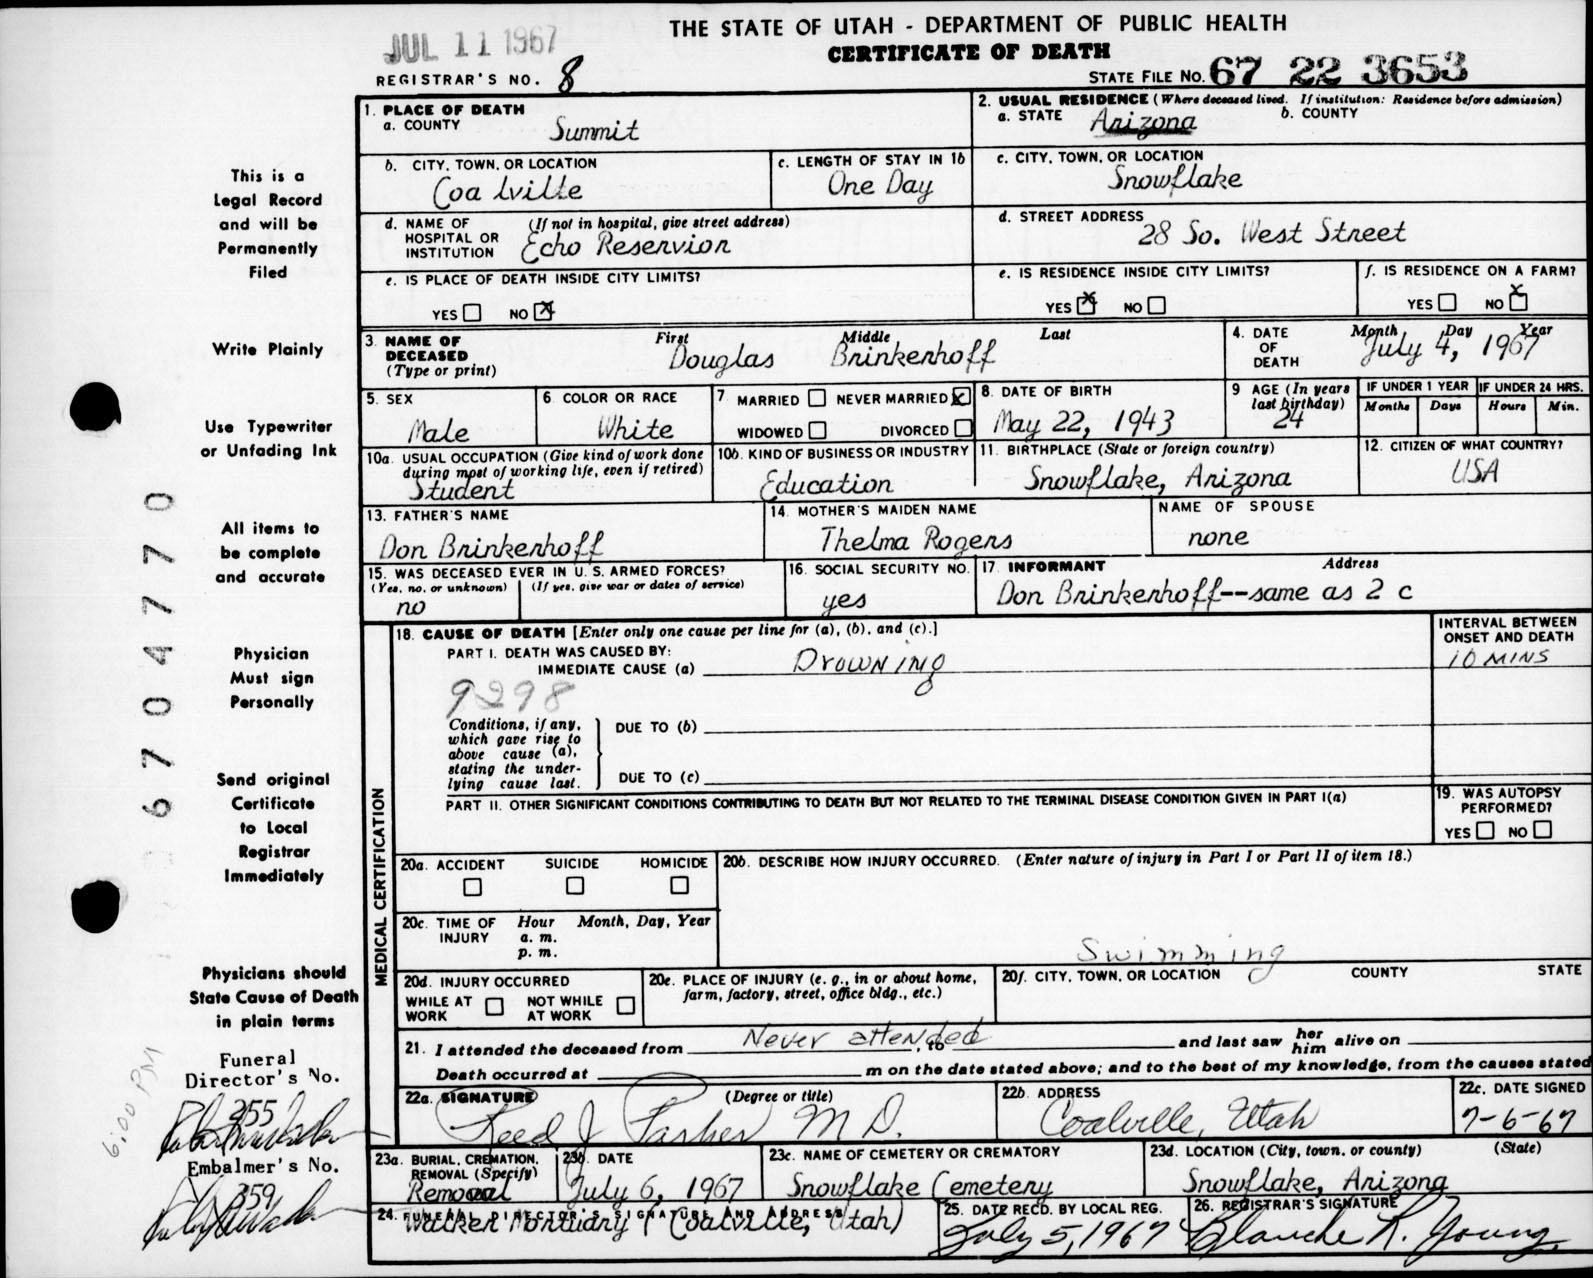 JUL 11 1967
THE STATE OF UTAH - DEPARTMENT OF PUBLIC HEALTH
CERTIFICATE OF DEATH
REGISTRAR'S NO. 8
STATE FILE NO. 67 22 3653
This is a
Legal Record
and will be
Permanently
Filed
Write Plainly
Use Typewriter
or Unfading Ink
All items to
be complete
and accurate
Physician
Must sign
Personally
Send original
Certificate
to Local
Registrar
Immediately
Physicians should
State Cause of Death
in plain terms
Funeral
Director's No.
255
Embalmer's No.
359
6:00 PM
6704770
1. PLACE OF DEATH
a. COUNTY Summit
2. USUAL RESIDENCE (Where deceased lived. If institution: Residence before admission)
a. STATE Arizona b. COUNTY
b. CITY, TOWN, OR LOCATION
Coalville
c. LENGTH OF STAY IN 1b
One Day
c. CITY, TOWN, OR LOCATION
Snowflake
d. NAME OF HOSPITAL OR INSTITUTION (If not in hospital, give street address)
Echo Reservior
d. STREET ADDRESS
28 So. West Street
e. IS PLACE OF DEATH INSIDE CITY LIMITS?
YES NO X
e. IS RESIDENCE INSIDE CITY LIMITS?
YES X NO
f. IS RESIDENCE ON A FARM?
YES NO X
3. NAME OF DECEASED (Type or print)
First Middle Last
Douglas Brinkerhoff
4. DATE OF DEATH Month Day Year
July 4, 1967
5. SEX
Male
6 COLOR OR RACE
White
7 MARRIED NEVER MARRIED X
WIDOWED DIVORCED
8. DATE OF BIRTH
May 22, 1943
9 AGE (In years last birthday)
24
IF UNDER 1 YEAR
Months Days
IF UNDER 24 HRS.
Hours Min.
10a. USUAL OCCUPATION (Give kind of work done during most of working life, even if retired)
Student
10b. KIND OF BUSINESS OR INDUSTRY
Education
11. BIRTHPLACE (State or foreign country)
Snowflake, Arizona
12. CITIZEN OF WHAT COUNTRY?
USA
13. FATHER'S NAME
Don Brinkerhoff
14. MOTHER'S MAIDEN NAME
Thelma Rogers
NAME OF SPOUSE
none
15. WAS DECEASED EVER IN U.S. ARMED FORCES?
(Yes, no, or unknown) (If yes, give war or dates of service)
no
16. SOCIAL SECURITY NO.
yes
17 INFORMANT Address
Don Brinkerhoff--same as 2 c
MEDICAL CERTIFICATION
18. CAUSE OF DEATH [Enter only one cause per line for (a), (b), and (c).]
PART I. DEATH WAS CAUSED BY:
IMMEDIATE CAUSE (a) Drowning
INTERVAL BETWEEN ONSET AND DEATH
10 MINS
9298
Conditions, if any, which gave rise to above cause (a), stating the underlying cause last.
DUE TO (b)
DUE TO (c)
PART II. OTHER SIGNIFICANT CONDITIONS CONTRIBUTING TO DEATH BUT NOT RELATED TO THE TERMINAL DISEASE CONDITION GIVEN IN PART I(a)
19. WAS AUTOPSY PERFORMED?
YES NO
20a. ACCIDENT SUICIDE HOMICIDE
20b. DESCRIBE HOW INJURY OCCURRED. (Enter nature of injury in Part I or Part II of item 18.)
Swimming
20c. TIME OF INJURY Hour Month, Day, Year
a. m.
p. m.
20d. INJURY OCCURRED
WHILE AT WORK NOT WHILE AT WORK
20e. PLACE OF INJURY (e. g., in or about home, farm, factory, street, office bldg., etc.)
20f. CITY, TOWN, OR LOCATION COUNTY STATE
21. I attended the deceased from Never attended, to and last saw her him alive on
Death occurred at m on the date stated above; and to the best of my knowledge, from the causes stated
22a. SIGNATURE (Degree or title)
Reed J Parker M D.
22b. ADDRESS
Coalville, Utah
22c. DATE SIGNED
7-6-67
23a. BURIAL, CREMATION, REMOVAL (Specify)
Removal
23b. DATE
July 6, 1967
23c. NAME OF CEMETERY OR CREMATORY
Snowflake Cemetery
23d. LOCATION (City, town, or county) (State)
Snowflake, Arizona
24. FUNERAL DIRECTOR'S SIGNATURE AND ADDRESS
Walker Mortuary (Coalville, Utah)
25. DATE RECD. BY LOCAL REG.
July 5, 1967
26. REGISTRAR'S SIGNATURE
Blanche R. Young